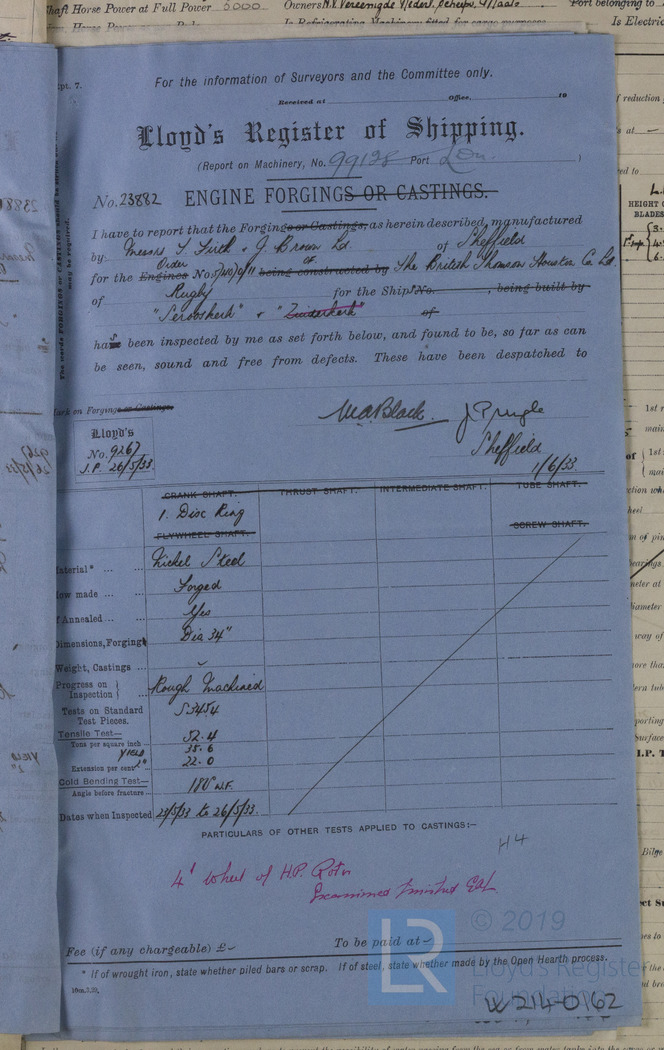 Shaft Horse Power at Full Power 6000 Owners N.V. Vereenigde Nederl. Scheepv. Maats Port belonging to
Is Refrigerating Machinery fitted for cargo purposes Is Electric
pt. 7.
For the information of Surveyors and the Committee only.
Received at Office, 19
Lloyd's Register of Shipping.
(Report on Machinery, No. 99138 Port Lon. )
No. 23882 ENGINE FORGINGS OR CASTINGS.
I have to report that the Forgings or Castings, as herein described, manufactured
by Messrs T. Firth & J. Brown Ld. of Sheffield
for the Engines Order No. being constructed by of The British Thomson Houston Co Ld
of Rugby for the Ship No. , being built by
"Serooskerk" & "Zuiderkerk" of
has been inspected by me as set forth below, and found to be, so far as can
be seen, sound and free from defects. These have been despatched to
The words FORGINGS or CASTINGS should be struck out
may be required.
Mark on Forgings or Castings.
W.A. Black. J Pringle
Lloyd's
No. 9267
J.P. 26/5/33.
Sheffield
1/6/33.
CRANK SHAFT. THRUST SHAFT. INTERMEDIATE SHAFT. TUBE SHAFT.
1. Disc Ring
FLYWHEEL SHAFT. SCREW SHAFT.
Material* ... ... Nickel Steel
How made ... ... Forged
If Annealed ... ... Yes
Dimensions, Forgings Dia 34"
Weight, Castings ...
Progress on Inspection ... Rough Machined
Tests on Standard Test Pieces. S3454
Tensile Test— 52.4
Tons per square inch ... YIELD 35.6
Extension per cent 2" 22.0
Cold Bending Test—
Angle before fracture ... 180° N.F.
Dates when Inspected 23/5/33 to 26/5/33.
PARTICULARS OF OTHER TESTS APPLIED TO CASTINGS:—
H4
4th wheel of H.P. Rotor
Examined finished
© 2019
LR
Lloyd's Register
Foundation
Fee (if any chargeable) £ To be paid at
* If of wrought iron, state whether piled bars or scrap. If of steel, state whether made by the Open Hearth process.
W214-0162